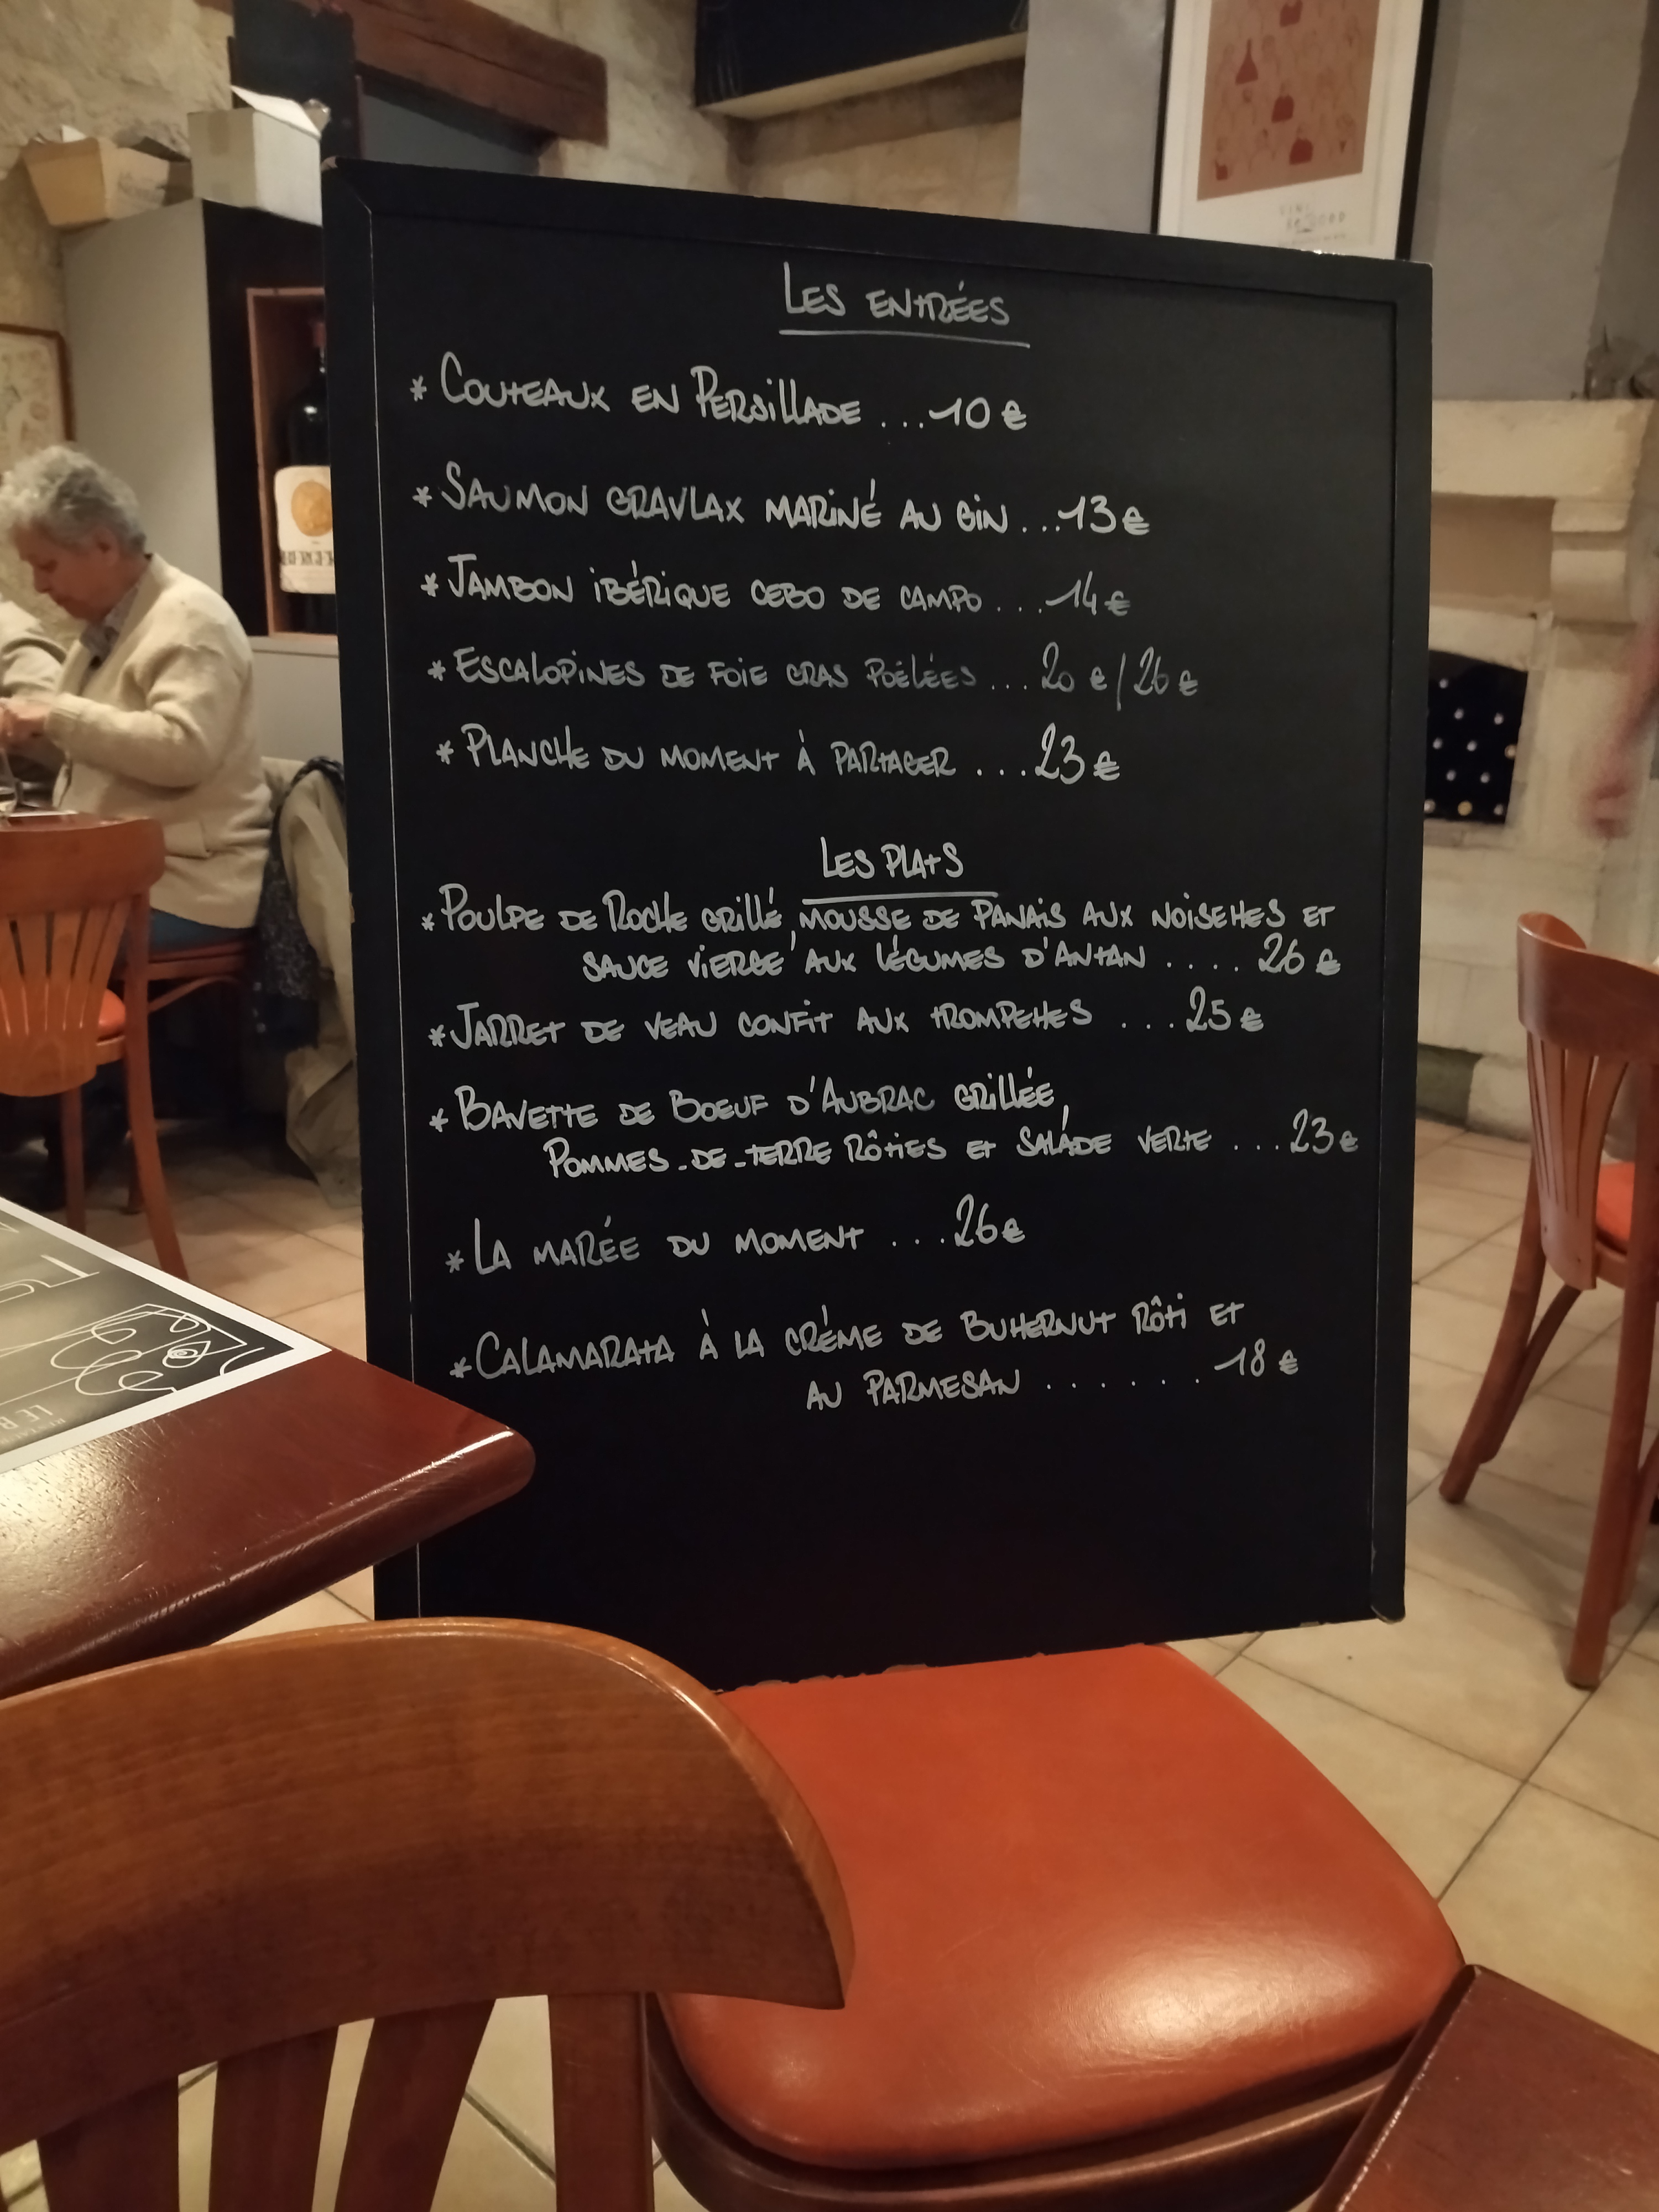 LES ENTRÉES
* COUTEAUX EN PERSILLADE ...10 €
* SAUMON GRAVLAX MARINÉ AU GIN ...13 €
* JAMBON IBÉRIQUE CEBO DE CAMPO ...14 €
* ESCALOPINES DE FOIE GRAS POÊLÉES ...20 €/26 €
* PLANCHE DU MOMENT À PARTAGER ...23 €
LES PLATS
* POULPE DE ROCHE GRILLÉ, MOUSSE DE PANAIS AUX NOISETTES ET
SAUCE VIERGE AUX LÉGUMES D'ANTAN .... 26 €
* JARRET DE VEAU CONFIT AUX TROMPETTES ...25 €
* BAVETTE DE BOEUF D'AUBRAC GRILLÉE,
POMMES-DE-TERRE RÔTIES ET SALADE VERTE ...23 €
* LA MARÉE DU MOMENT ...26 €
* CALAMARATA À LA CRÈME DE BUTTERNUT RÔTI ET
AU PARMESAN .......18 €